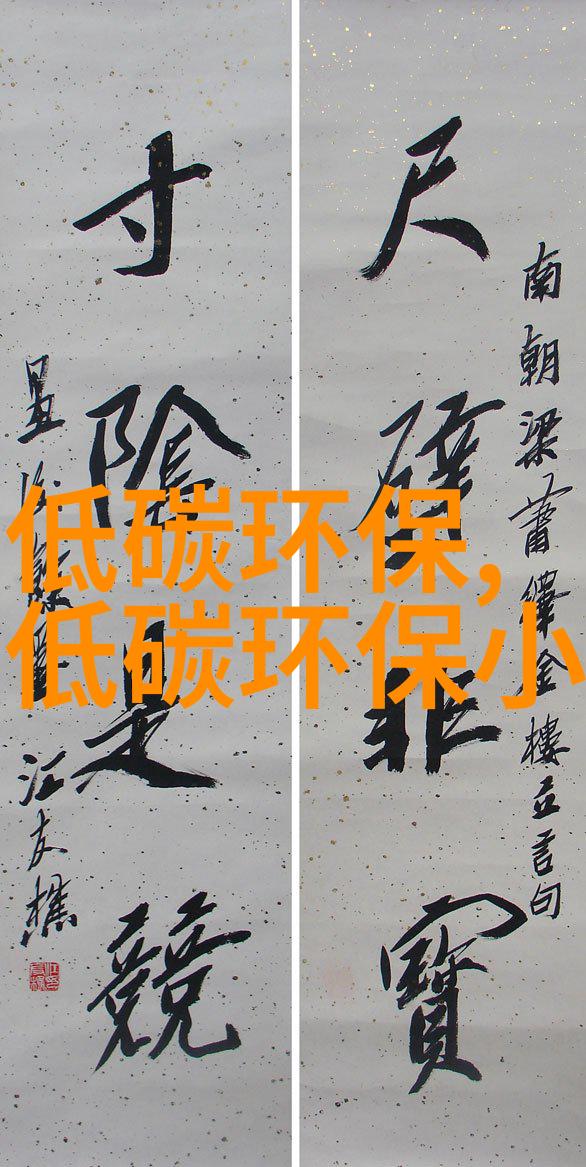 低碳环保,
低碳环保小
南朝梁蕭繹金樓立言句
尺璧非寶
寸陰是競
汪友樵